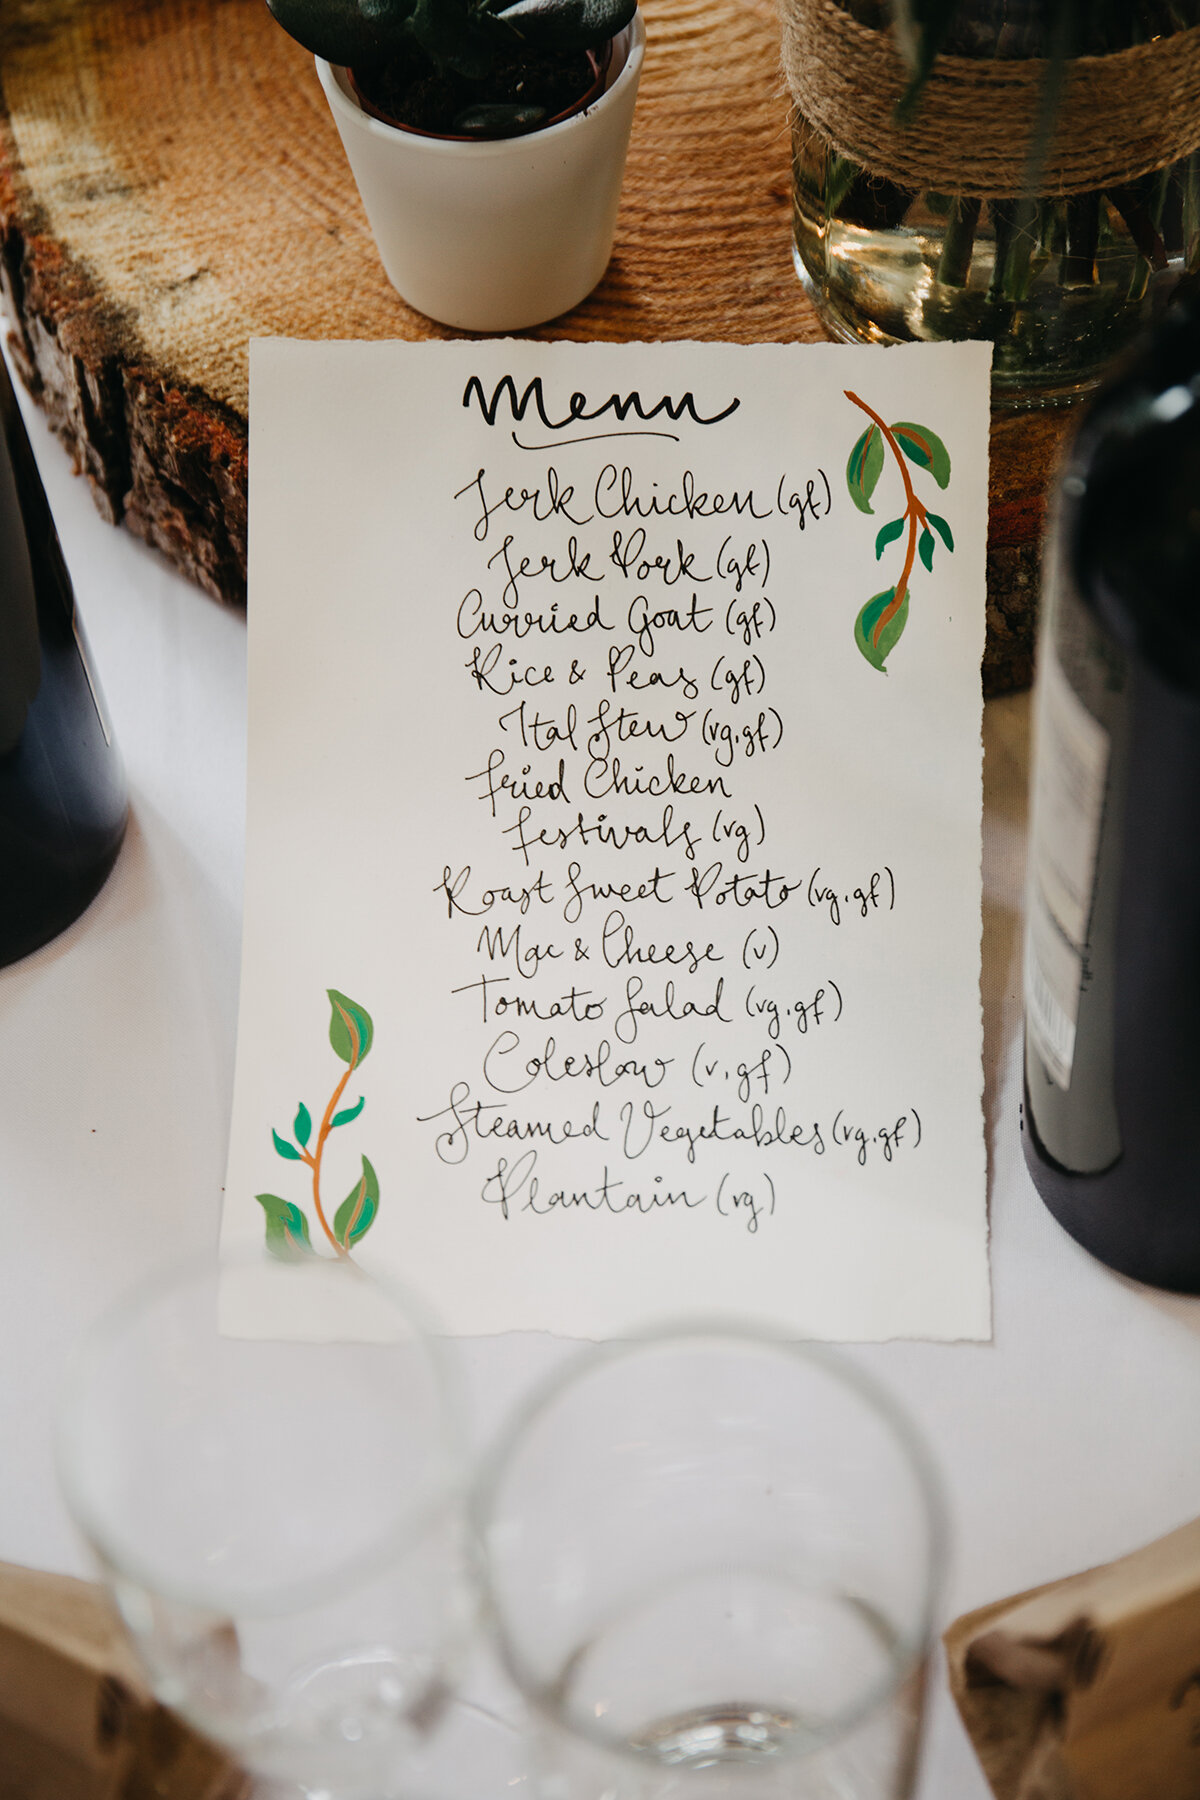 Menu
Jerk Chicken (gf)
Jerk Pork (gf)
Curried Goat (gf)
Rice & Peas (gf)
Ital Stew (vg.gf)
Fried Chicken
Festivals (vg)
Roast Sweet Potato (vg.gf)
Mac & Cheese (v)
Tomato Salad (vg.gf)
Coleslaw (v.gf)
Steamed Vegetables (vg.gf)
Plantain (vg)